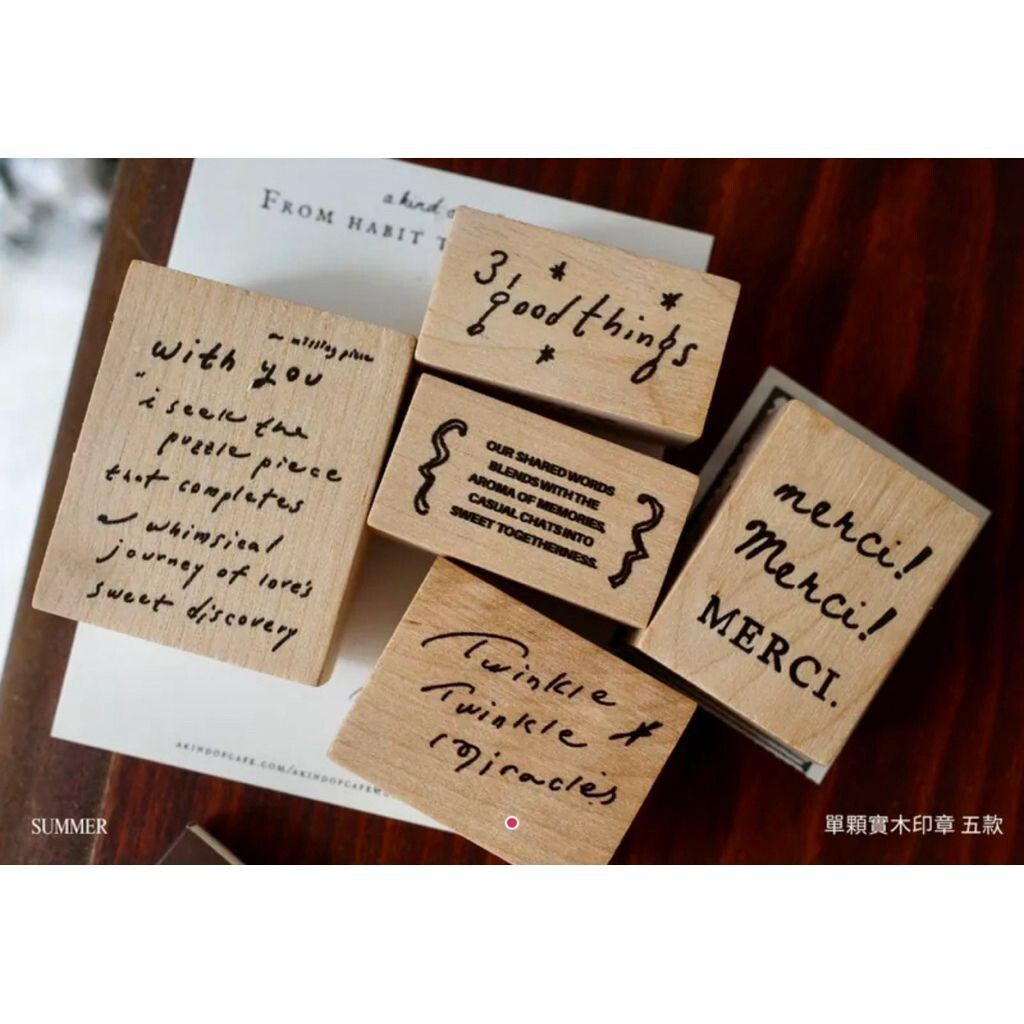 a kind
FROM HABIT
3, good things
a missing piece
with you
"i seek the
puzzle piece
that completes
a whimsical
journey of love's
sweet discovery
OUR SHARED WORDS
BLENDS WITH THE
AROMA OF MEMORIES,
CASUAL CHATS INTO
SWEET TOGETHERNESS.
merci!
Merci!
MERCI.
Twinkle
Twinkle
miracles
AKINDOFCAFE.COM/AKINDOFCAFE
SUMMER
單顆實木印章 五款